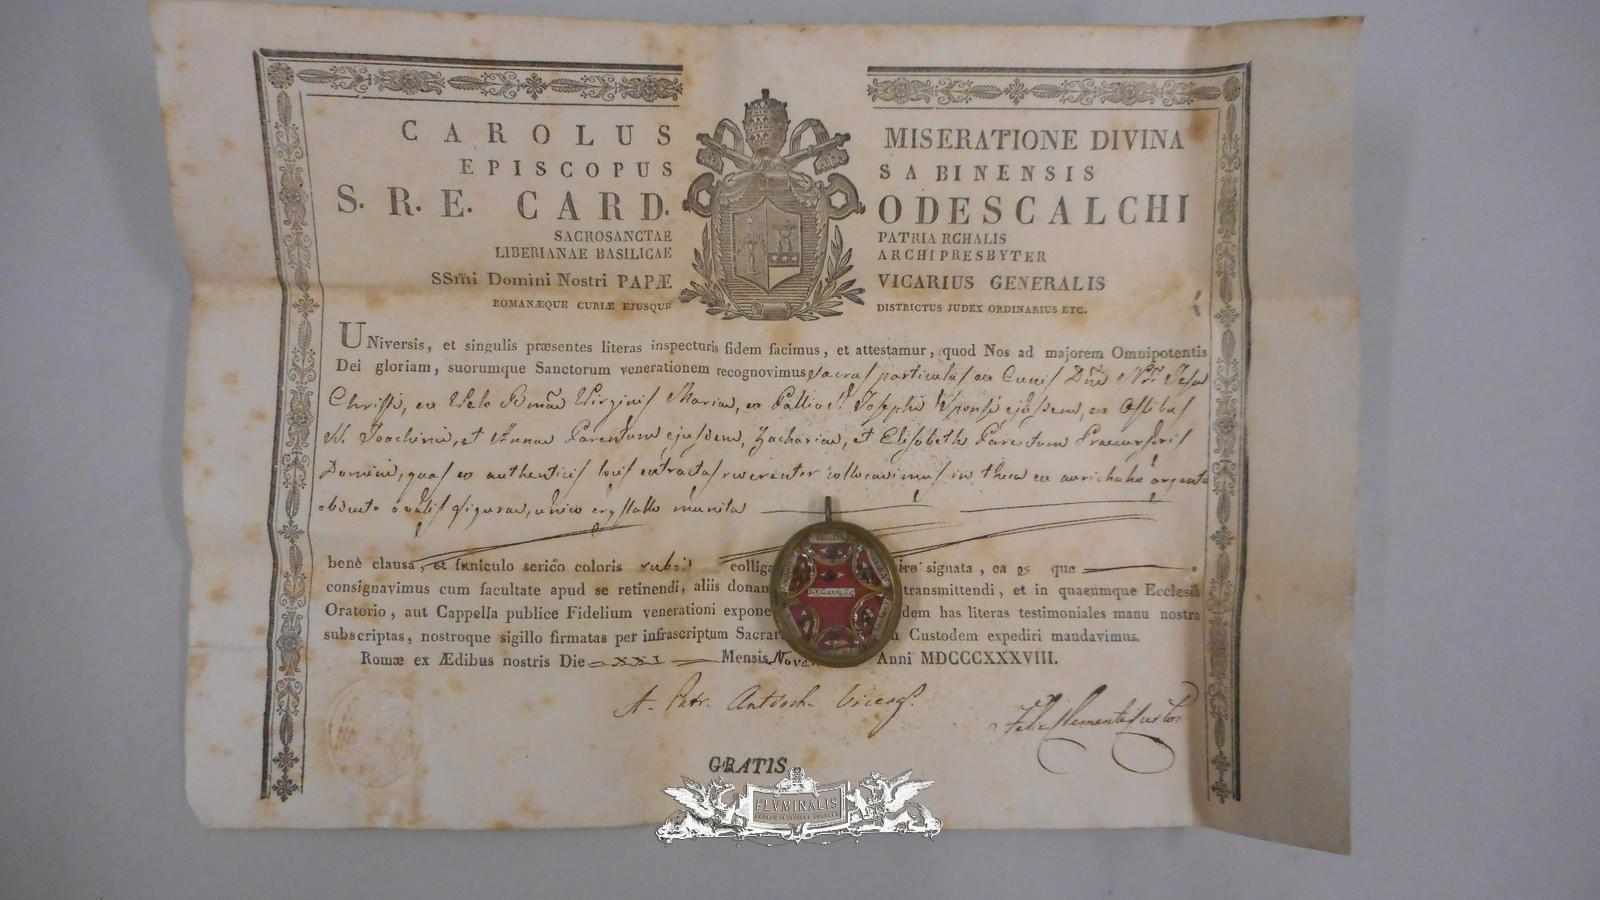 CAROLUS MISERATIONE DIVINA
EPISCOPUS SABINENSIS
S. R. E. CARD. ODESCALCHI
SACROSANCTAE PATRIARCHALIS
LIBERIANAE BASILICAE ARCHIPRESBYTER
SSm̃i Domini Nostri PAPÆ VICARIUS GENERALIS
ROMANÆQUE CURIÆ EJUSQUE DISTRICTUS JUDEX ORDINARIUS ETC.
UNiversis, et singulis præsentes literas inspecturis fidem facimus, et attestamur, quod Nos ad majorem Omnipotentis
Dei gloriam, suorumque Sanctorum venerationem recognovimus sacras particulas ex Cunis Dñi Nr̃i Jesu
Christi, ex Velo Virginis Mariae, ex Pallio S. Josephi Sponsi ejusdem, ex Ossibus
SS. Joachimi, et Annae Parentum ejusdem, Zachariae, et Elisabeth Parentum Praecursoris
Domini, quas ex authenticis locis extractas reverenter collocavimus in theca ex aurichalco argento
obducto ovalis figurae, unico crystallo munita
benè clausa, et funiculo serico coloris rubri colliga signata, ea que
consignavimus cum facultate apud se retinendi, aliis donan transmittendi, et in quacumque Ecclesia
Oratorio, aut Cappella publice Fidelium venerationi expone dem has literas testimoniales manu nostra
subscriptas, nostroque sigillo firmatas per infrascriptum Sacrar Custodem expediri mandavimus.
Romæ ex Ædibus nostris Die XXI Mensis Nove Anni MDCCCXXXVIII.
A. Patr. Antioch. Vicesg.
GRATIS
FLVMINALIS